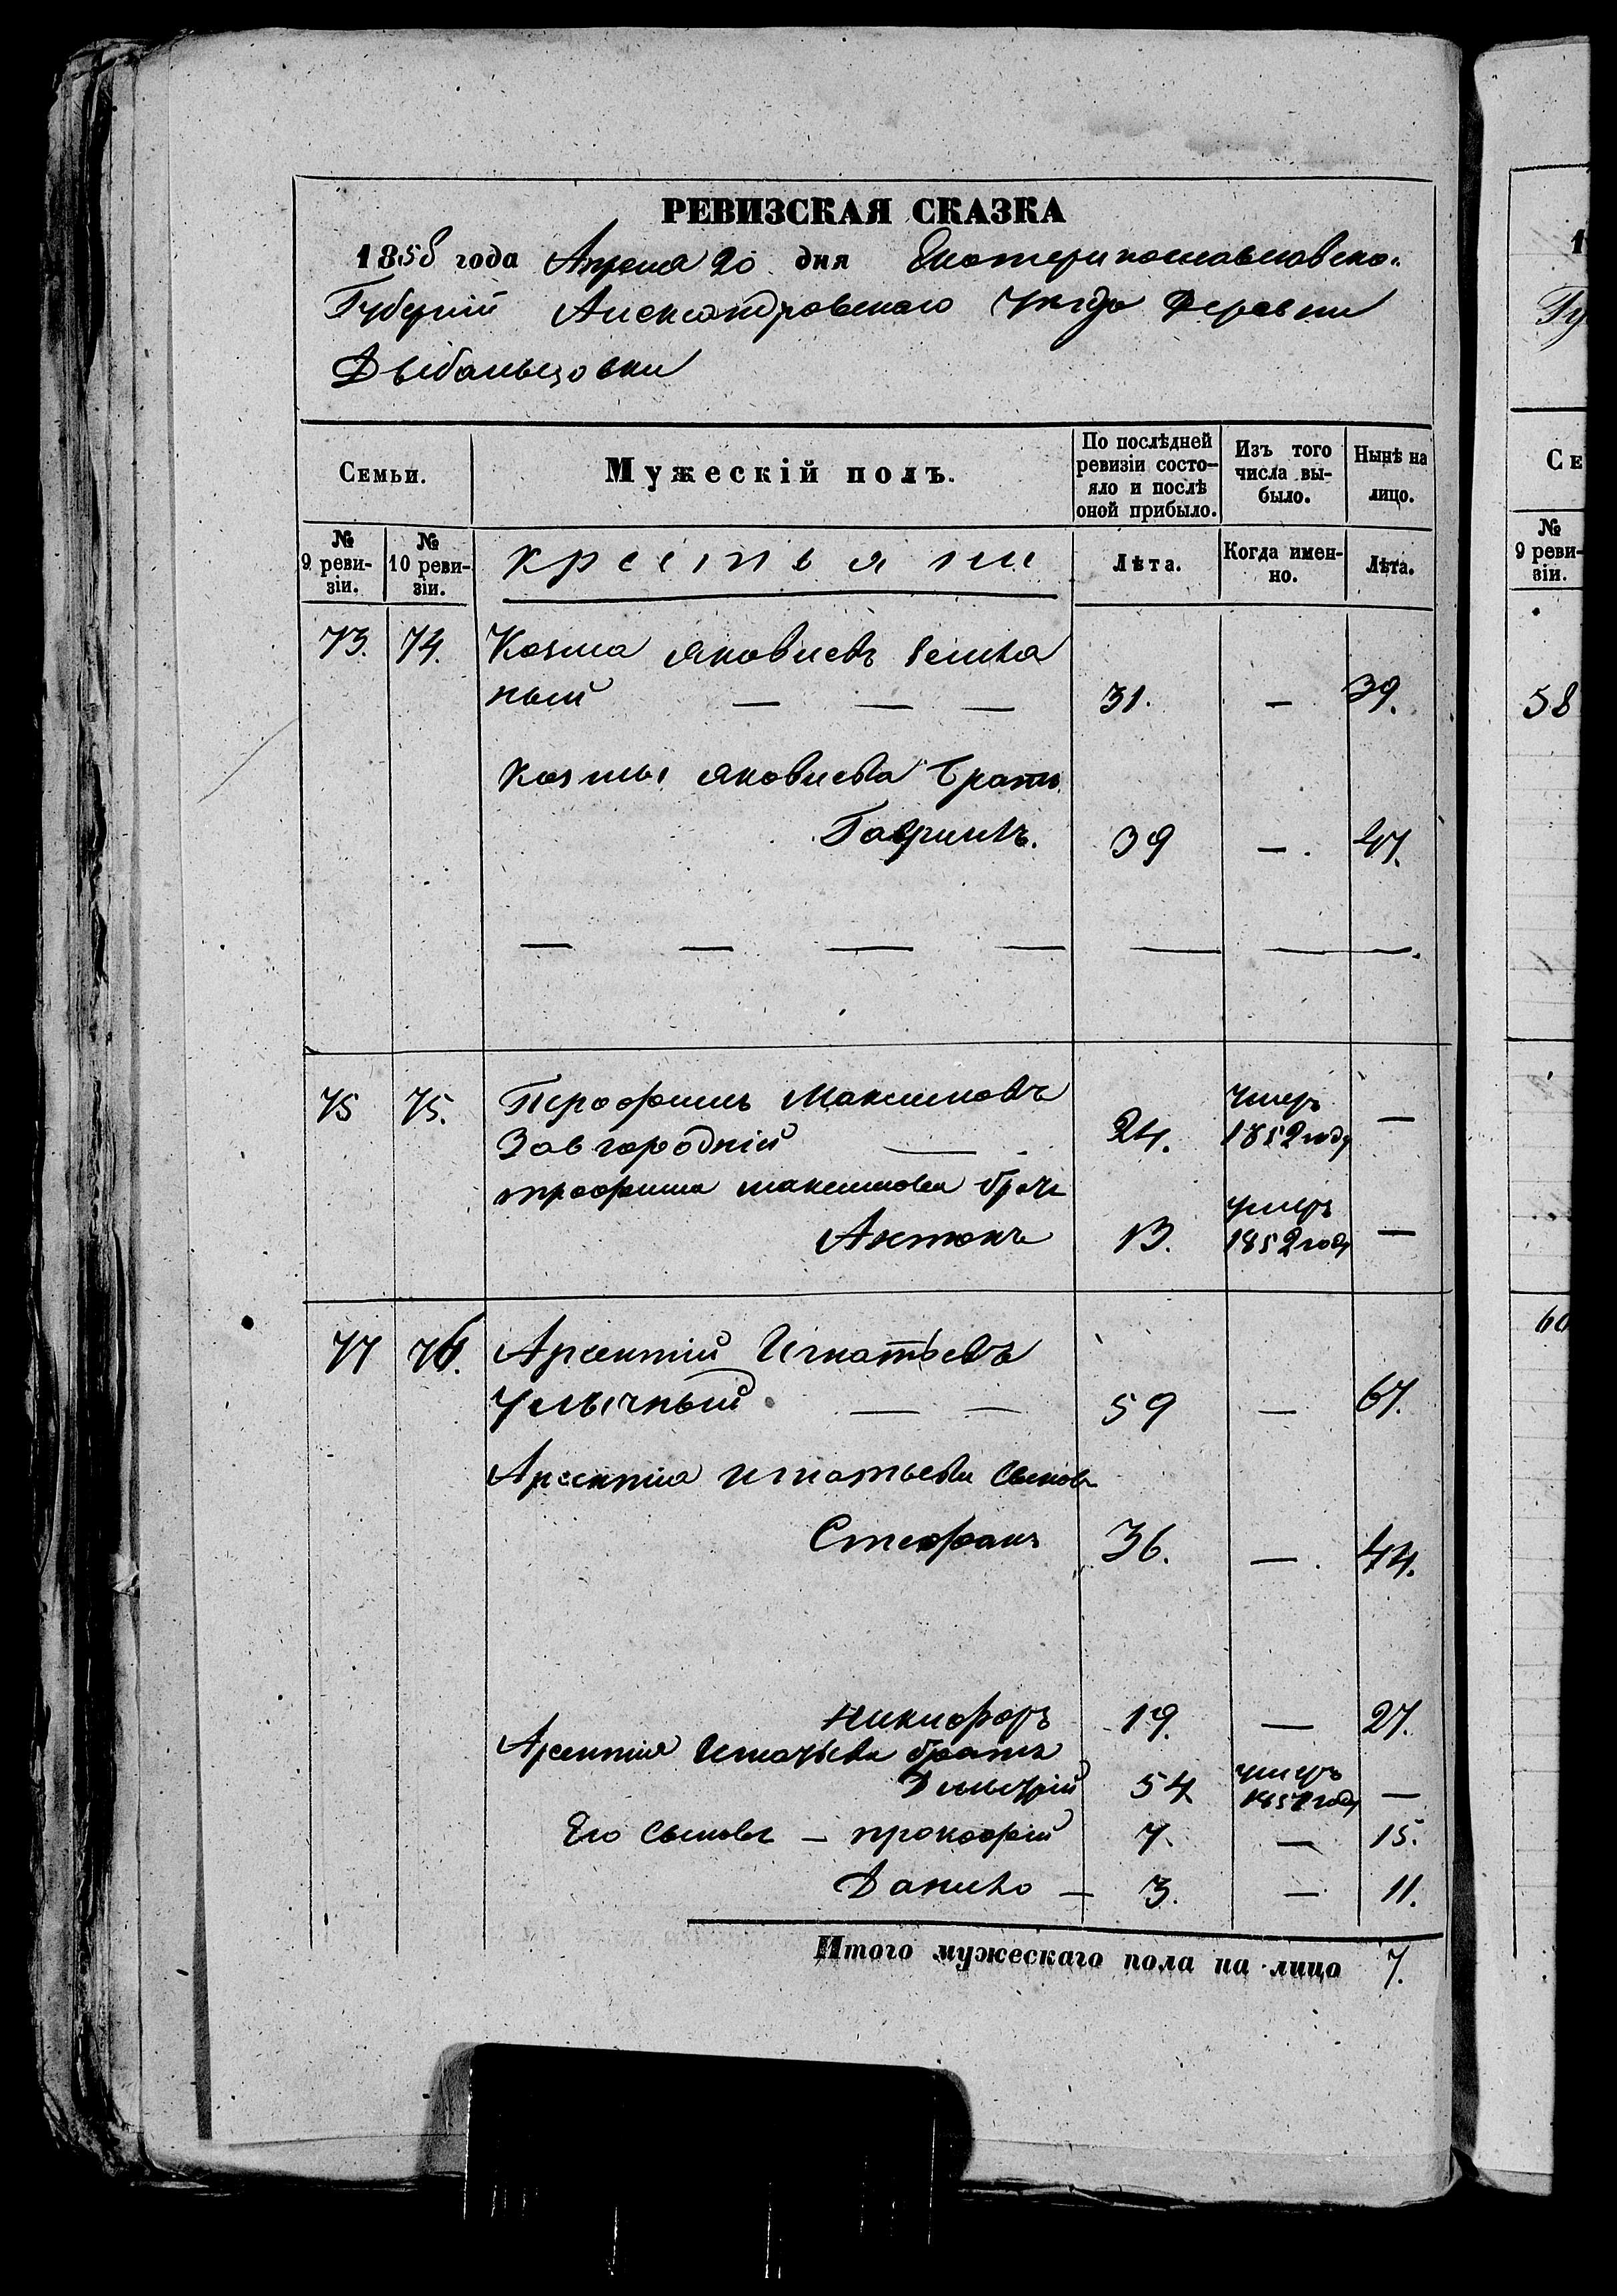 РЕВИЗСКАЯ СКАЗКА
1858 года Апреля 20 дня Екатеринославско.
Губерніи Александровскаго Уѣзда Деревни
Дыбальцовки
Семьи.
Мужескій полъ.
По послѣдней ревизіи состо-
яло и послѣ
оной прибыло.
Изъ того
числа вы-
было.
Нынѣ на
лицо.
№
9 реви-
зіи.
№
10 реви-
зіи.
крестьяни
Лѣта.
Когда имен-
но.
Лѣта.
73. 74. Козма Яковлевъ
ный — — — 31. — 39.
Козмы Яковлева братъ
Гаврило. 39 — . 47.
— — — — — — —.
75 75. Трофимъ Максимовъ умеръ —
Завгородній — 24. 1852 году
трофима максимова братъ умеръ
Антонъ 13. 1852 году —
77 76. Арсентій Игнатьевъ
59 — 67.
Арсентія Игнатьева сыновья
Стефанъ 36. — . 44.
Никифоръ 19. — 27.
Арсентія Игнатьева братъ умеръ
Дмитрій 54 году —
Его сыновья — прокофій 7. — 15.
Данило — 3. — 11.
Итого мужескаго пола на лицо 7.
1
Гу
Се
№
9 реви-
зіи.
58
60